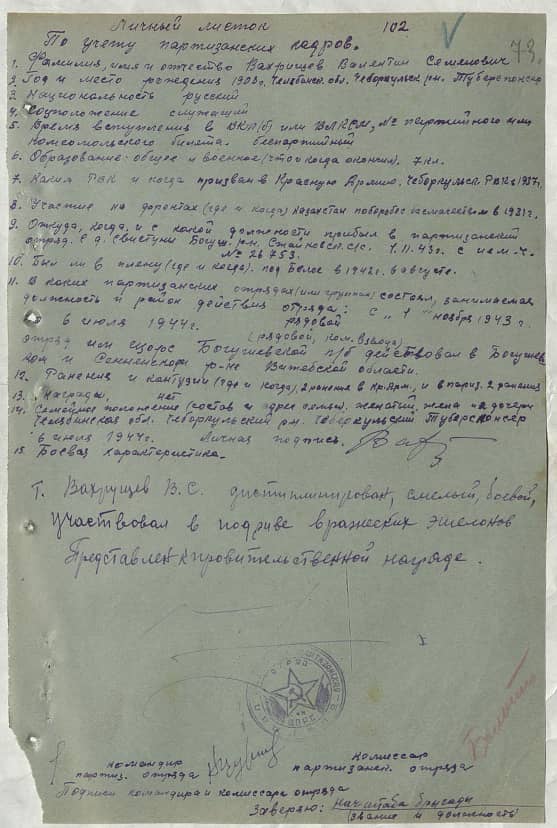 Личный листок 102
73.
По учету партизанских кадров.
1. Фамилия, имя и отчество Вахрищев Валентин Семенович
2. Год и место рождения 1903г. Челябинс. обл. Чебаркульск. рн.
3. Национальность русский
4. Соцположение служащий
5. Время вступления в ВКП(б) или ВЛКСМ, № партийного или
комсомольского билета. беспартийный
6. Образование: общее и военное (что и когда окончил). 7 кл.
7. Каким РВК и когда призван в Красную Армию. Чеборкульск. РВК в
8. Участие на фронтах (где и когда)
9. Откуда, когда, и с какой должности прибыл в партизанский
отряд. с д. Свистуны Богуш. рн. с/с. 1.11.43г. с
№ 26753.
10. Был ли в плену (где и когда). под Белое в 1942г. в августе.
11. В каких партизанских отрядах (или группах) состоял, занимаемая
должность и район действия отряда: с „1" ноября 1943г.
6 июля 1944г. рядовой
(рядовой, ком. взвода)
отряд им Щорс Богушевской п/б действовал в Богушев
ком и Сенненском р-не Витебской области.
12. Ранения и контузии (где и когда), в Кр. Арм., и в парт. 2 ранения
13. Награды, нет
14. Семейное положение (состав и адрес семьи). женатый, жена и 2 дочери
Челябинская обл. Чеборкульский рн.
6 июля 1944г. Личная подпись.
15. Боевая характеристика.
Т. Вахрущев В.С. дистиплинирован, смелый, боевой,
Участвовал в подриве вражеских эшелонов
Представлен к провительственной награде.
командир комиссар
партиз. отряда партизанск. отряда
Подписи командира и комиссара отряда
Заверяю: Нач штаба бригады
(звание и должность)